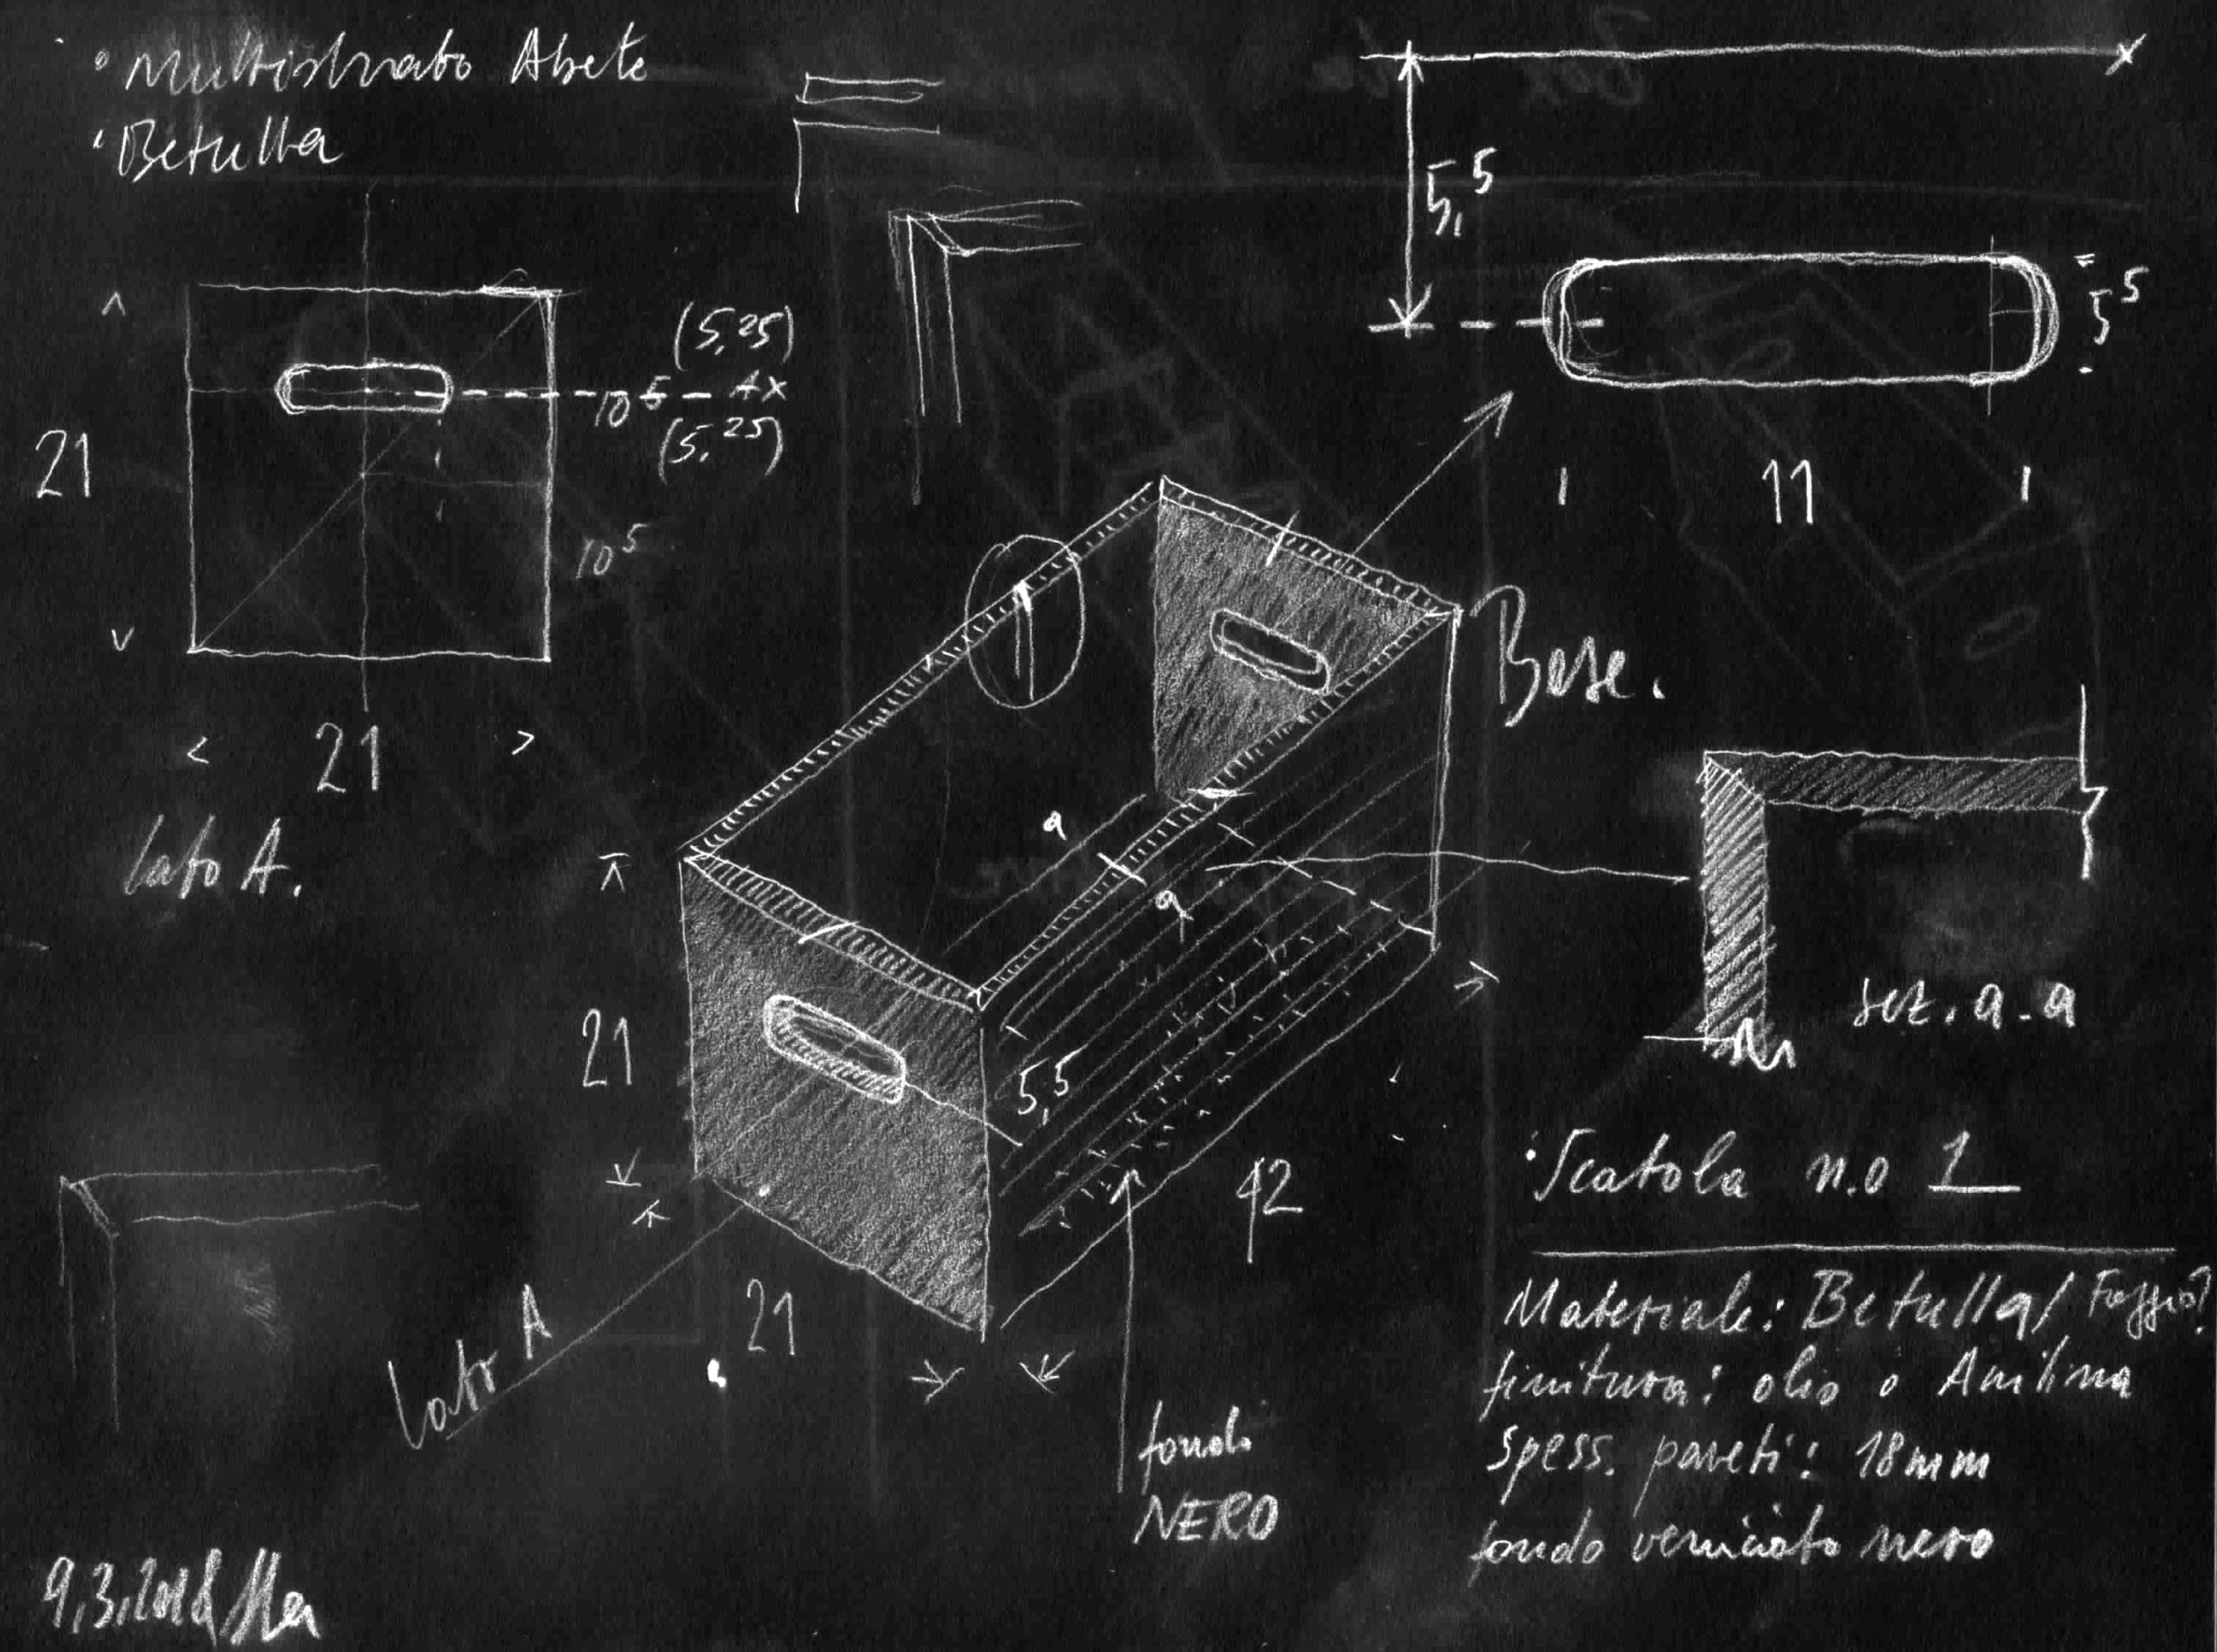 • Multistrato Abete
• Betulla
5,5
(5,25)
10 5 Ax
(5,25)
21
10 5
21
lato A.
5 5
11
Base.
a
a
sez. a-a
21
5,5
42
21
lato A
fondo
NERO
• Scatola n.o 1
Materiale: Betulla / Faggio?
finitura: olio o Anilina
Spess. pareti: 18mm
fondo verniciato nero